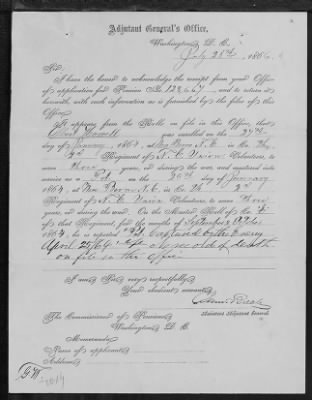 Adjutant General's Office,
Washington, D. C.
July 28th, 1866
Sir:
I have the honor to acknowledge the receipt from your Office
of application for Pension No. 128,667, and to return it
herewith, with such information as is furnished by the files of this
Office.
It appears from the Roll on file in this Office, that
was enrolled on the 27th
day of January, 1864, at New Berne N.C. in Co.
2nd Regiment of N.C. Union Volunteers, to serve
three years, or during the war, and mustered into
service as a Pvt. on the 30th day of January
1864, at New Berne N.C. in Co. 2nd
Regiment of N.C. Union Volunteers, to serve three
years, or during the war. On the Muster Roll of Co.
of that Regiment, for the months of September &
1864, he is reported by the Enemy
April 25/64. No record of death
on file in this office
I am, Sir, very respectfully,
Your obedient servant,
Assistant Adjutant General.
The Commissioner of Pensions,
Washington, D. C.
Memoranda.
Name of applicant,
Address,